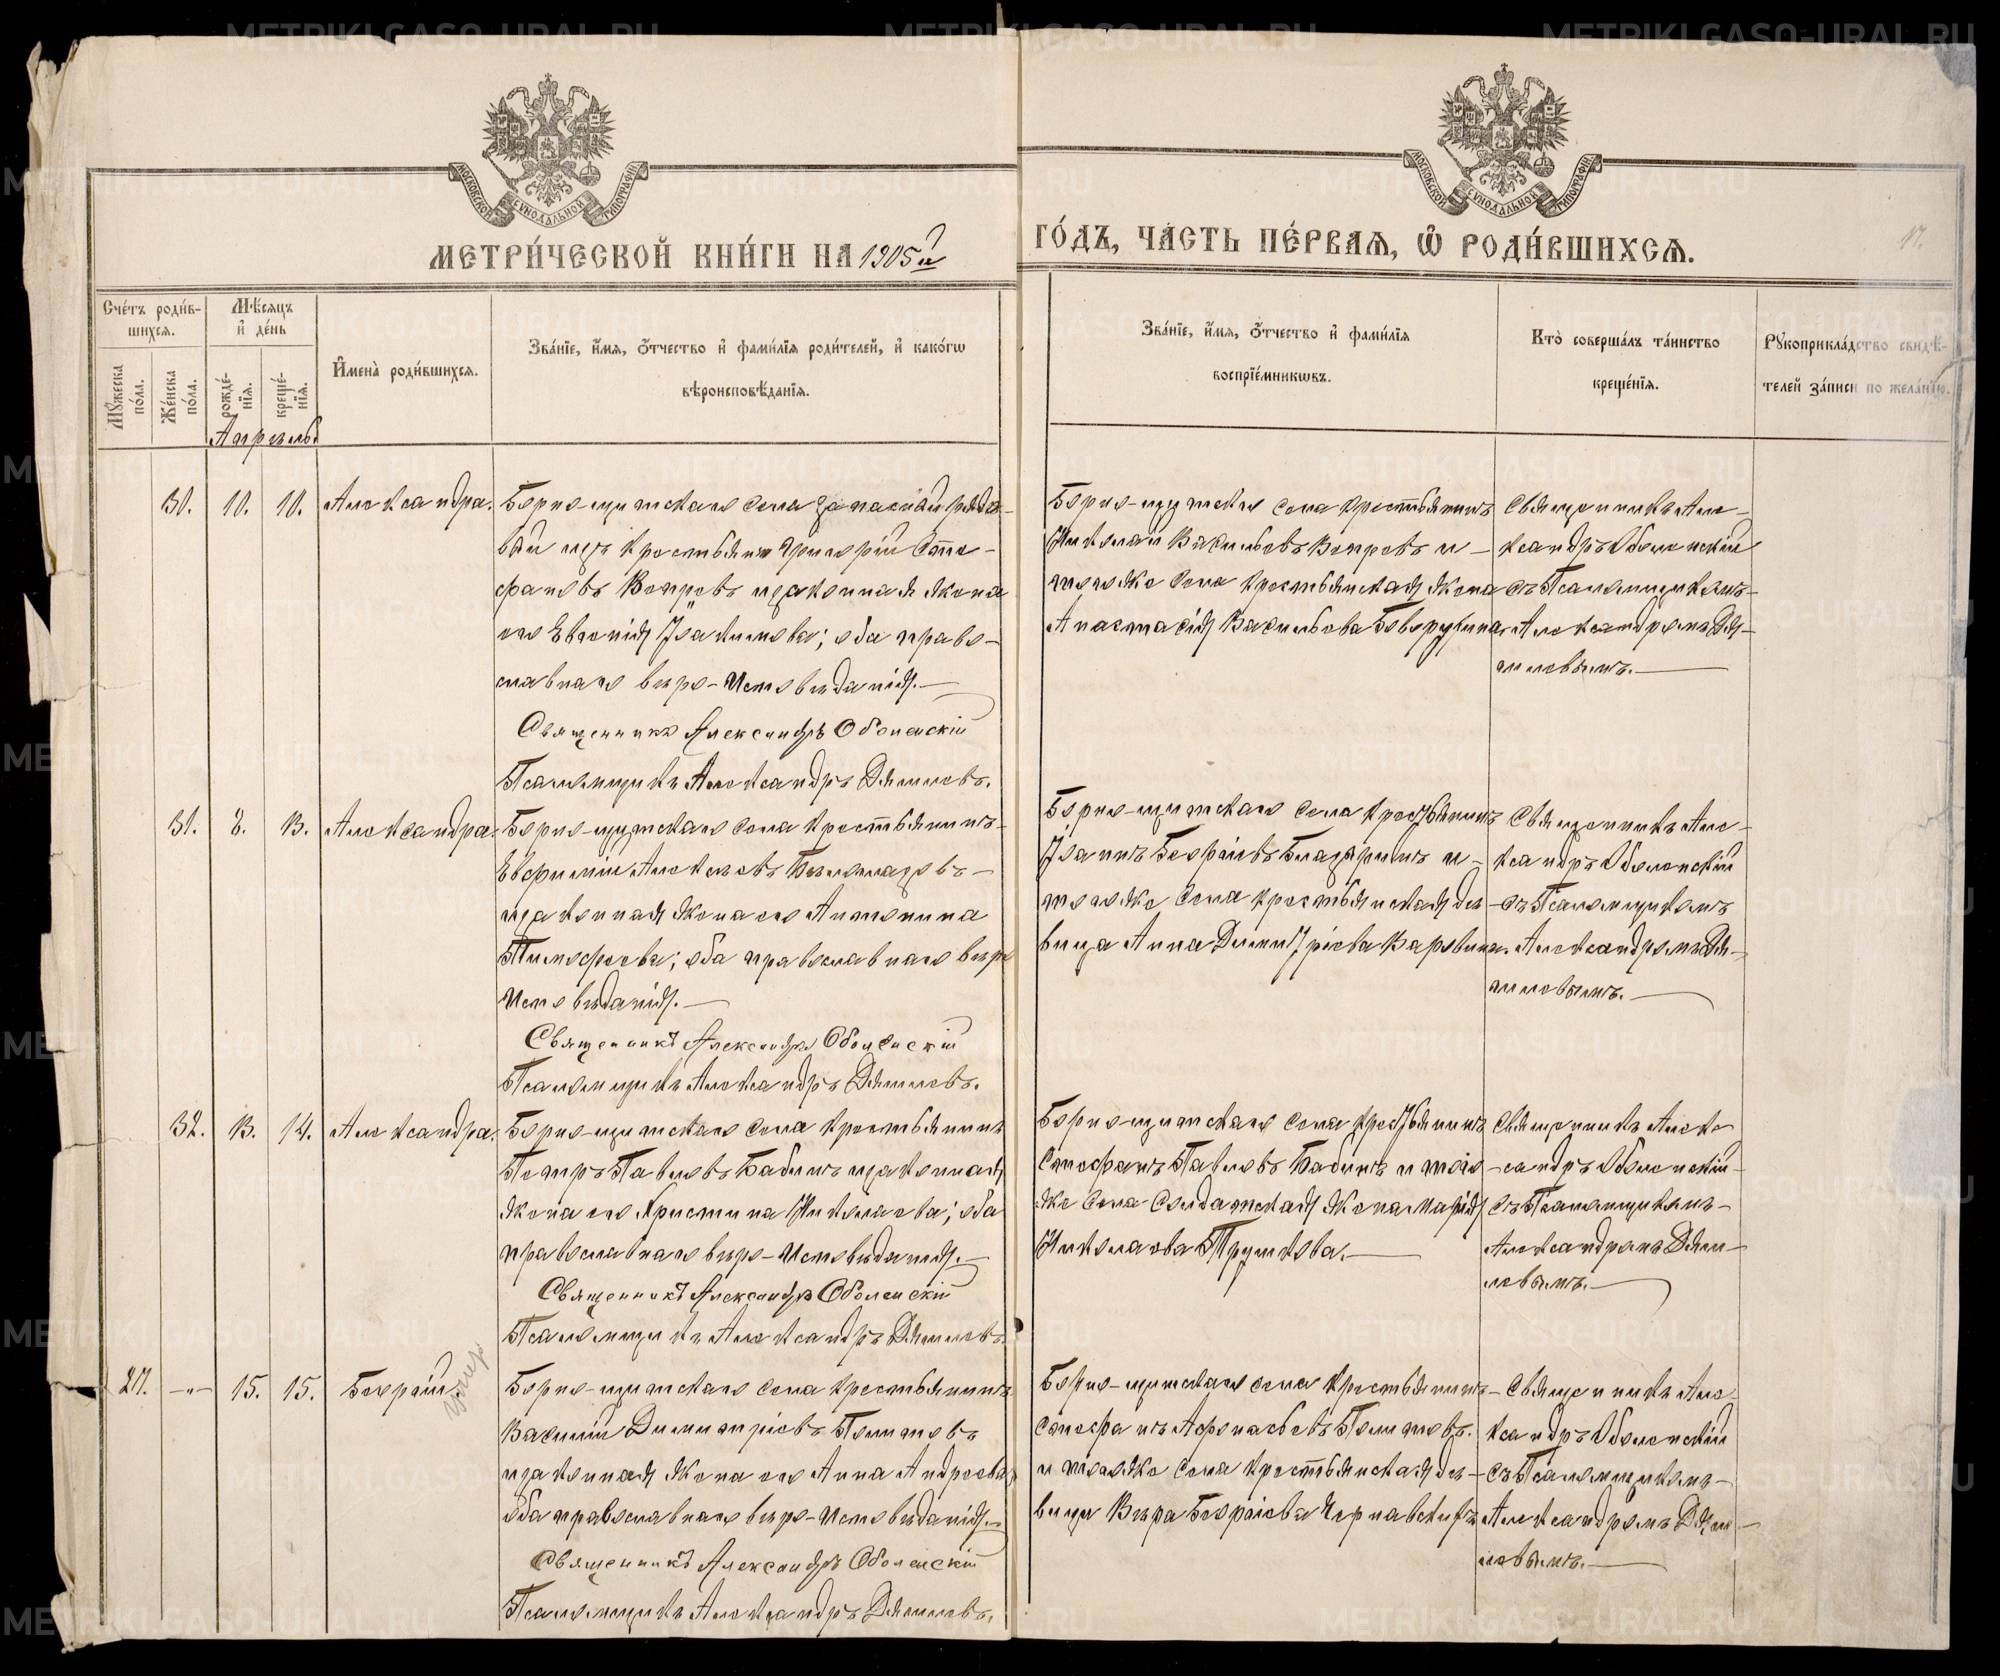 МОСКОВСКОЙ СѴНОДАЛЬНОЙ ТИПОГРАФІИ
МОСКОВСКОЙ СѴНОДАЛЬНОЙ ТИПОГРАФІИ
МЕТРИ́ЧЕСКОЙ КНИ́ГИ НА 1905й
ГО́ДЪ, ЧА́СТЬ ПЕ́РВАЯ, Ѽ РОДИ́ВШИХСЯ.
17.
Сче́тъ роди́в-
шихся.
Му́жеска по́ла.
Же́нска по́ла.
Мѣ́сяцъ
и де́нь
рожде́нія.
креще́нія.
Имена̀ роди́вшихся.
Зва́ніе, и́мя, о́тчество и фами́лія роди́телей, и како́гѡ
вѣроисповѣ́данія.
Зва́ніе, и́мя, о́тчество и фами́лія
воспрїе́мникѡвъ.
Кто̀ соверша́лъ та́инство
креще́нія.
Рꙋкоприкла́дство свидѣ́-
телей за́писи по жела́нїю.
Апрѣль
30. 10. 10. Александра.
Борно-щитскаго села запасный рядо-
вой изъ крестьянъ Григорій Сте-
фановъ и законная жена
его Евгенія Іоакимова; оба право-
славнаго вѣро-исповѣданія.
Священникъ Александръ Оболенскій
Псаломщикъ Александръ Дягилевъ.
Борно-щитскаго села крестьянинъ
Николай Васильевъ и
тогоже села крестьянская жена
Анастасія Васильева
Священникъ Але-
ксандръ Оболенскій
съ Псаломщикомъ
Александромъ Дя-
гилевымъ.
31. 8. 13. Александра.
Борно-щитскаго села крестьянинъ
Евфимій Алексѣевъ
и законная жена его Антонина
Тимофеева; оба православнаго вѣро
исповѣданія.
Священникъ Александръ Оболенскій
Псаломщикъ Александръ Дягилевъ.
Борно-щитскаго села крестьянинъ
Іоаннъ Георгіевъ и
тогоже села крестьянская дѣ-
вица Анна Димитріева
Священникъ Але-
ксандръ Оболенскій
съ Псаломщикомъ
Александромъ Дя-
гилевымъ.
32. 13. 14. Александра.
Борно-щитскаго села крестьянинъ
Петръ Павловъ Бабинъ и законная
жена его Христина Николаева; оба
православнаго вѣро-исповѣданія.
Священникъ Александръ Оболенскій
Псаломщикъ Александръ Дягилевъ.
Борно-щитскаго села крестьянинъ
Стефанъ Павловъ Бабинъ и того
же села солдатская жена Марія
Николаева Трушкова.
Священникъ Алекс
сандръ Оболенскій
съ Псаломщикомъ
Александромъ Дяги-
левымъ.
27. -„- 15. 15. Георгій.
умер
Борно-щитскаго села крестьянинъ
Василій Димитріевъ
и законная жена его Анна Андреева
оба православнаго вѣро-исповѣданія.
Священникъ Александръ Оболенскій
Псаломщикъ Александръ Дягилевъ.
Борно-щитскаго села крестьянинъ
Стефанъ Афонасьевъ
и тогоже села крестьянская дѣ-
вица Вѣра Георгіева
Священникъ Але-
ксандръ Оболенскій
съ Псаломщикомъ
Александромъ Дяги-
левымъ.
METRIKI.GASO-URAL.RU